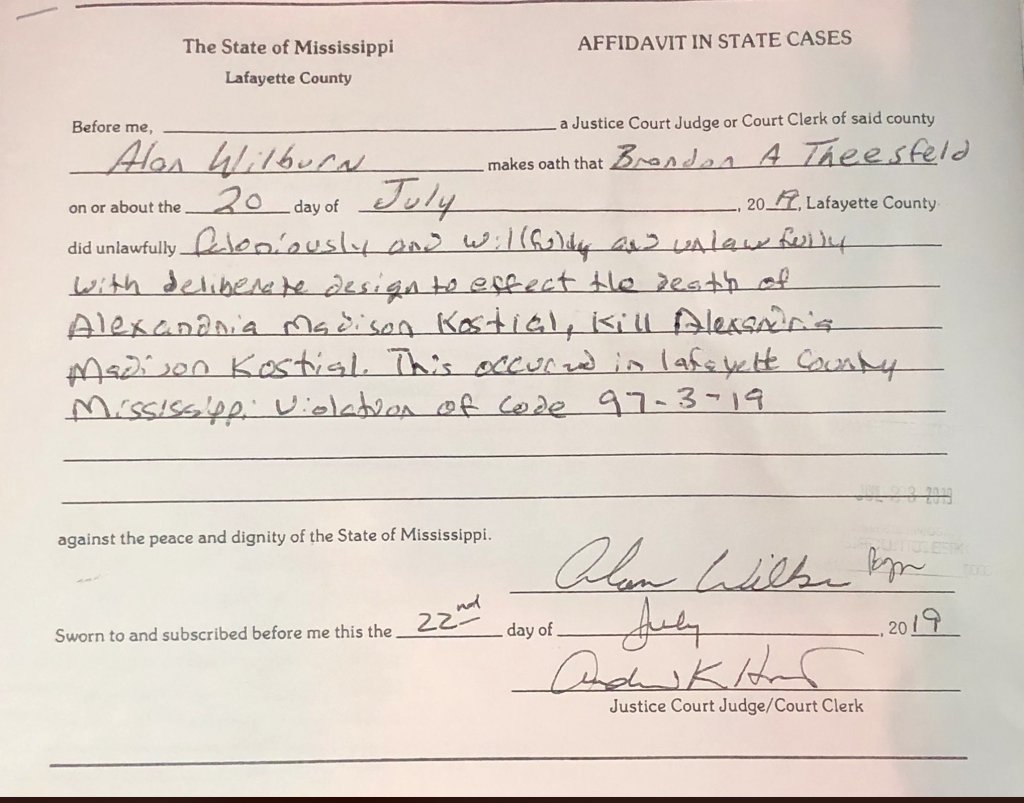 The State of Mississippi
AFFIDAVIT IN STATE CASES
Lafayette County
Before me, a Justice Court Judge or Court Clerk of said county
Alan Wilburn makes oath that Brandon A Theesfeld
on or about the 20 day of July, 2019, Lafayette County
did unlawfully feloniously and willfully and unlawfully
with deliberate design to effect the death of
Alexandria Madison Kostial, Kill Alexandria
Madison Kostial. This occurred in lafayett County
Mississippi Violation of Code 97-3-19
JUL 23 2019
against the peace and dignity of the State of Mississippi.
Alan Wilburn
Sworn to and subscribed before me this the 22nd day of July, 2019
Justice Court Judge/Court Clerk